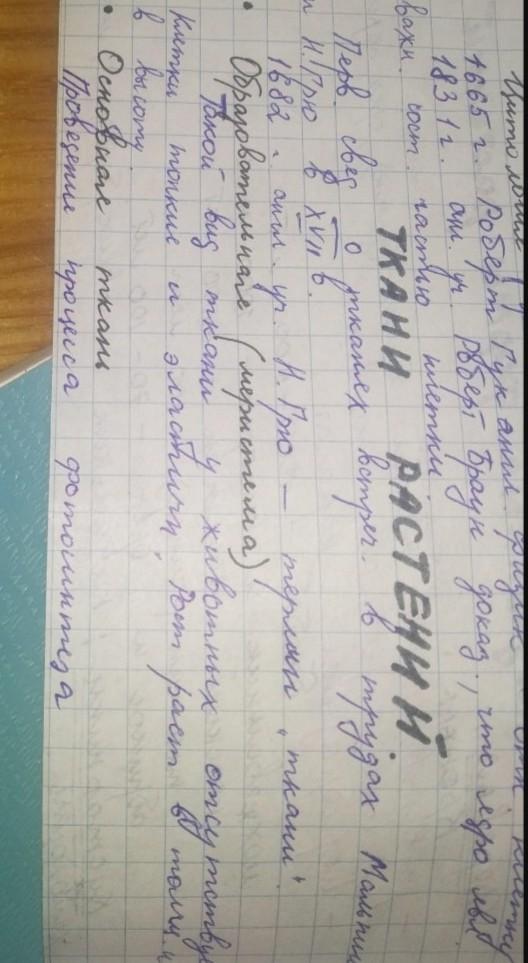 Цитология
1665 г. Роберт Гук англ. физик отк. клетку
1831 г. анг. уч. Роберт Броун доказ., что ядро явл
важн. сост. частью клетки
ТКАНИ РАСТЕНИЙ
Перв. свед о тканях встреч. в трудах Мальпиги
и Н.Грю в XVII в.
1682. англ. уч. Н.Грю — термин "ткани"
• Образовательная (меристема)
Такой вид ткани у животных отсутствуе
Клетки тонкие и эластичн. Рост раст в толщ. и
в высоту
• Основная ткань
Проведение процесса фотосинтеза